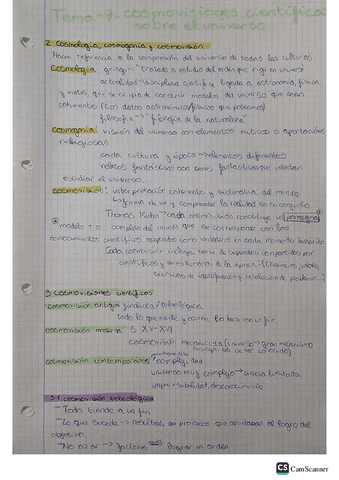 Tema-7 cosmovisiones científicas
sobre el universo
2. Cosmología, cosmogonía y cosmovisión
Hacen referencia a la comprensión del universo de todas las culturas
Cosmología: griego "tratado o estudio del orden que rige en universo"
actualidad disciplina científica ligada a astronomía, física
y mates, que se ocupa de construir modelos del universo que sean
coherentes (con datos astronómicos/físicos que poseemos)
filosofía → "filosofía de la naturaleza"
Cosmogonía: visión del universo con elementos míticos o aportaciones
religiosas
cada cultura y época → elementos diferentes
relatos fantásticos con seres fantásticos que intentan
estudiar el universo.
cosmovisión: interpretación coherente y sistemática del mundo
forma de ver y comprender la realidad en su conjunto
Thomas Kuhn → cada cosmovisión constituye un paradigma
modelo + o - complejo del mundo que se corresponde con los
conocimientos científicos aceptados como verdaderos en cada momento histórico
Cada cosmovisión incluye serie de supuestos compartidos por
científicos y
3. Cosmovisiones científicas
cosmovisión antigua /teleológica
todo lo que existe y ocurre, lo hace con un fin.
cosmovisión moderna S. XV-XVI
cosmovisión mecanicista (universo → gran mecanismo
cosmovisión contemporánea
universo muy complejo → ciencia limitada
3.1 cosmovisión teleológica
- Todo tiende a un fin
- Lo que sucede → resultado de procesos que al logro del
objetivo.
- No azar → factores lograr un orden
CS CamScanner